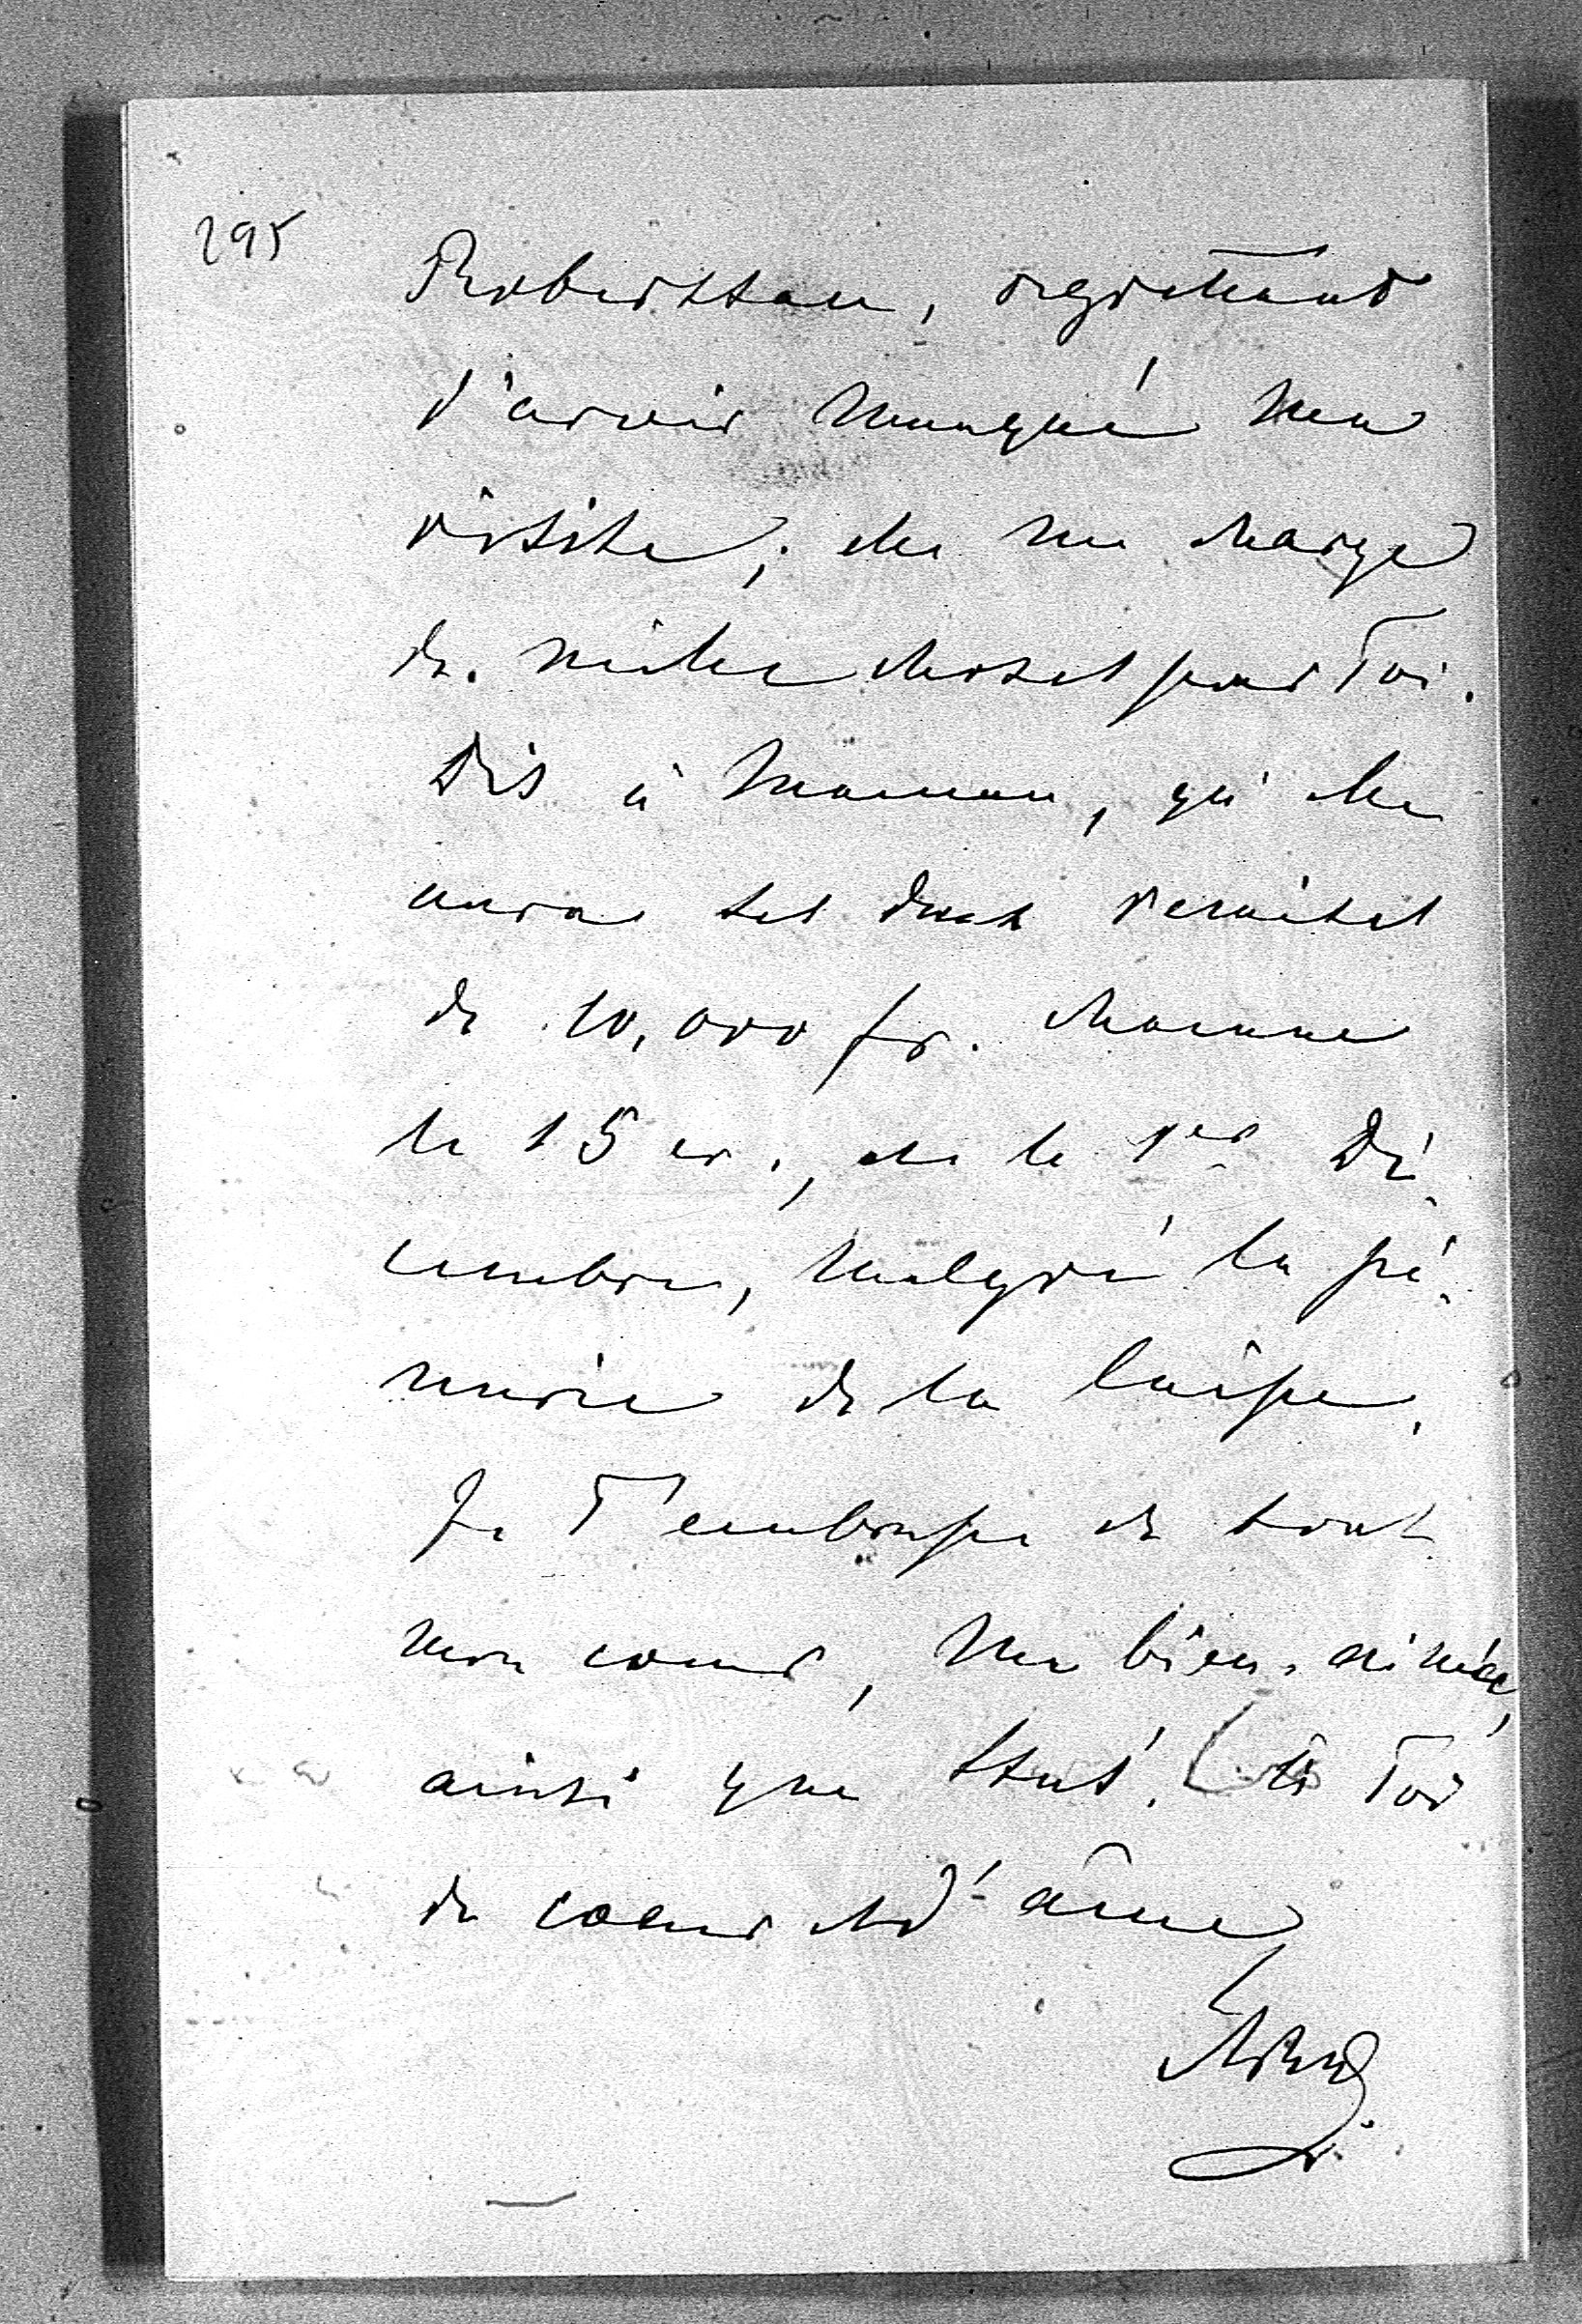 295
Robertsau, regrettant
d'avoir manqué ma
visite; elle me charge
de mille choses pour Toi.
Dis à Maman, qu'elle
aura ses deux remises
de 10,000 fr. chacune
le 15 cr., et le 1er Dé-
cembre, malgré la pé-
nurie de la caisse.
Je T'embrasse de tout
mon coeur, ma bien-aimée,
ainsi que . à Toi
de coeur et d'âme